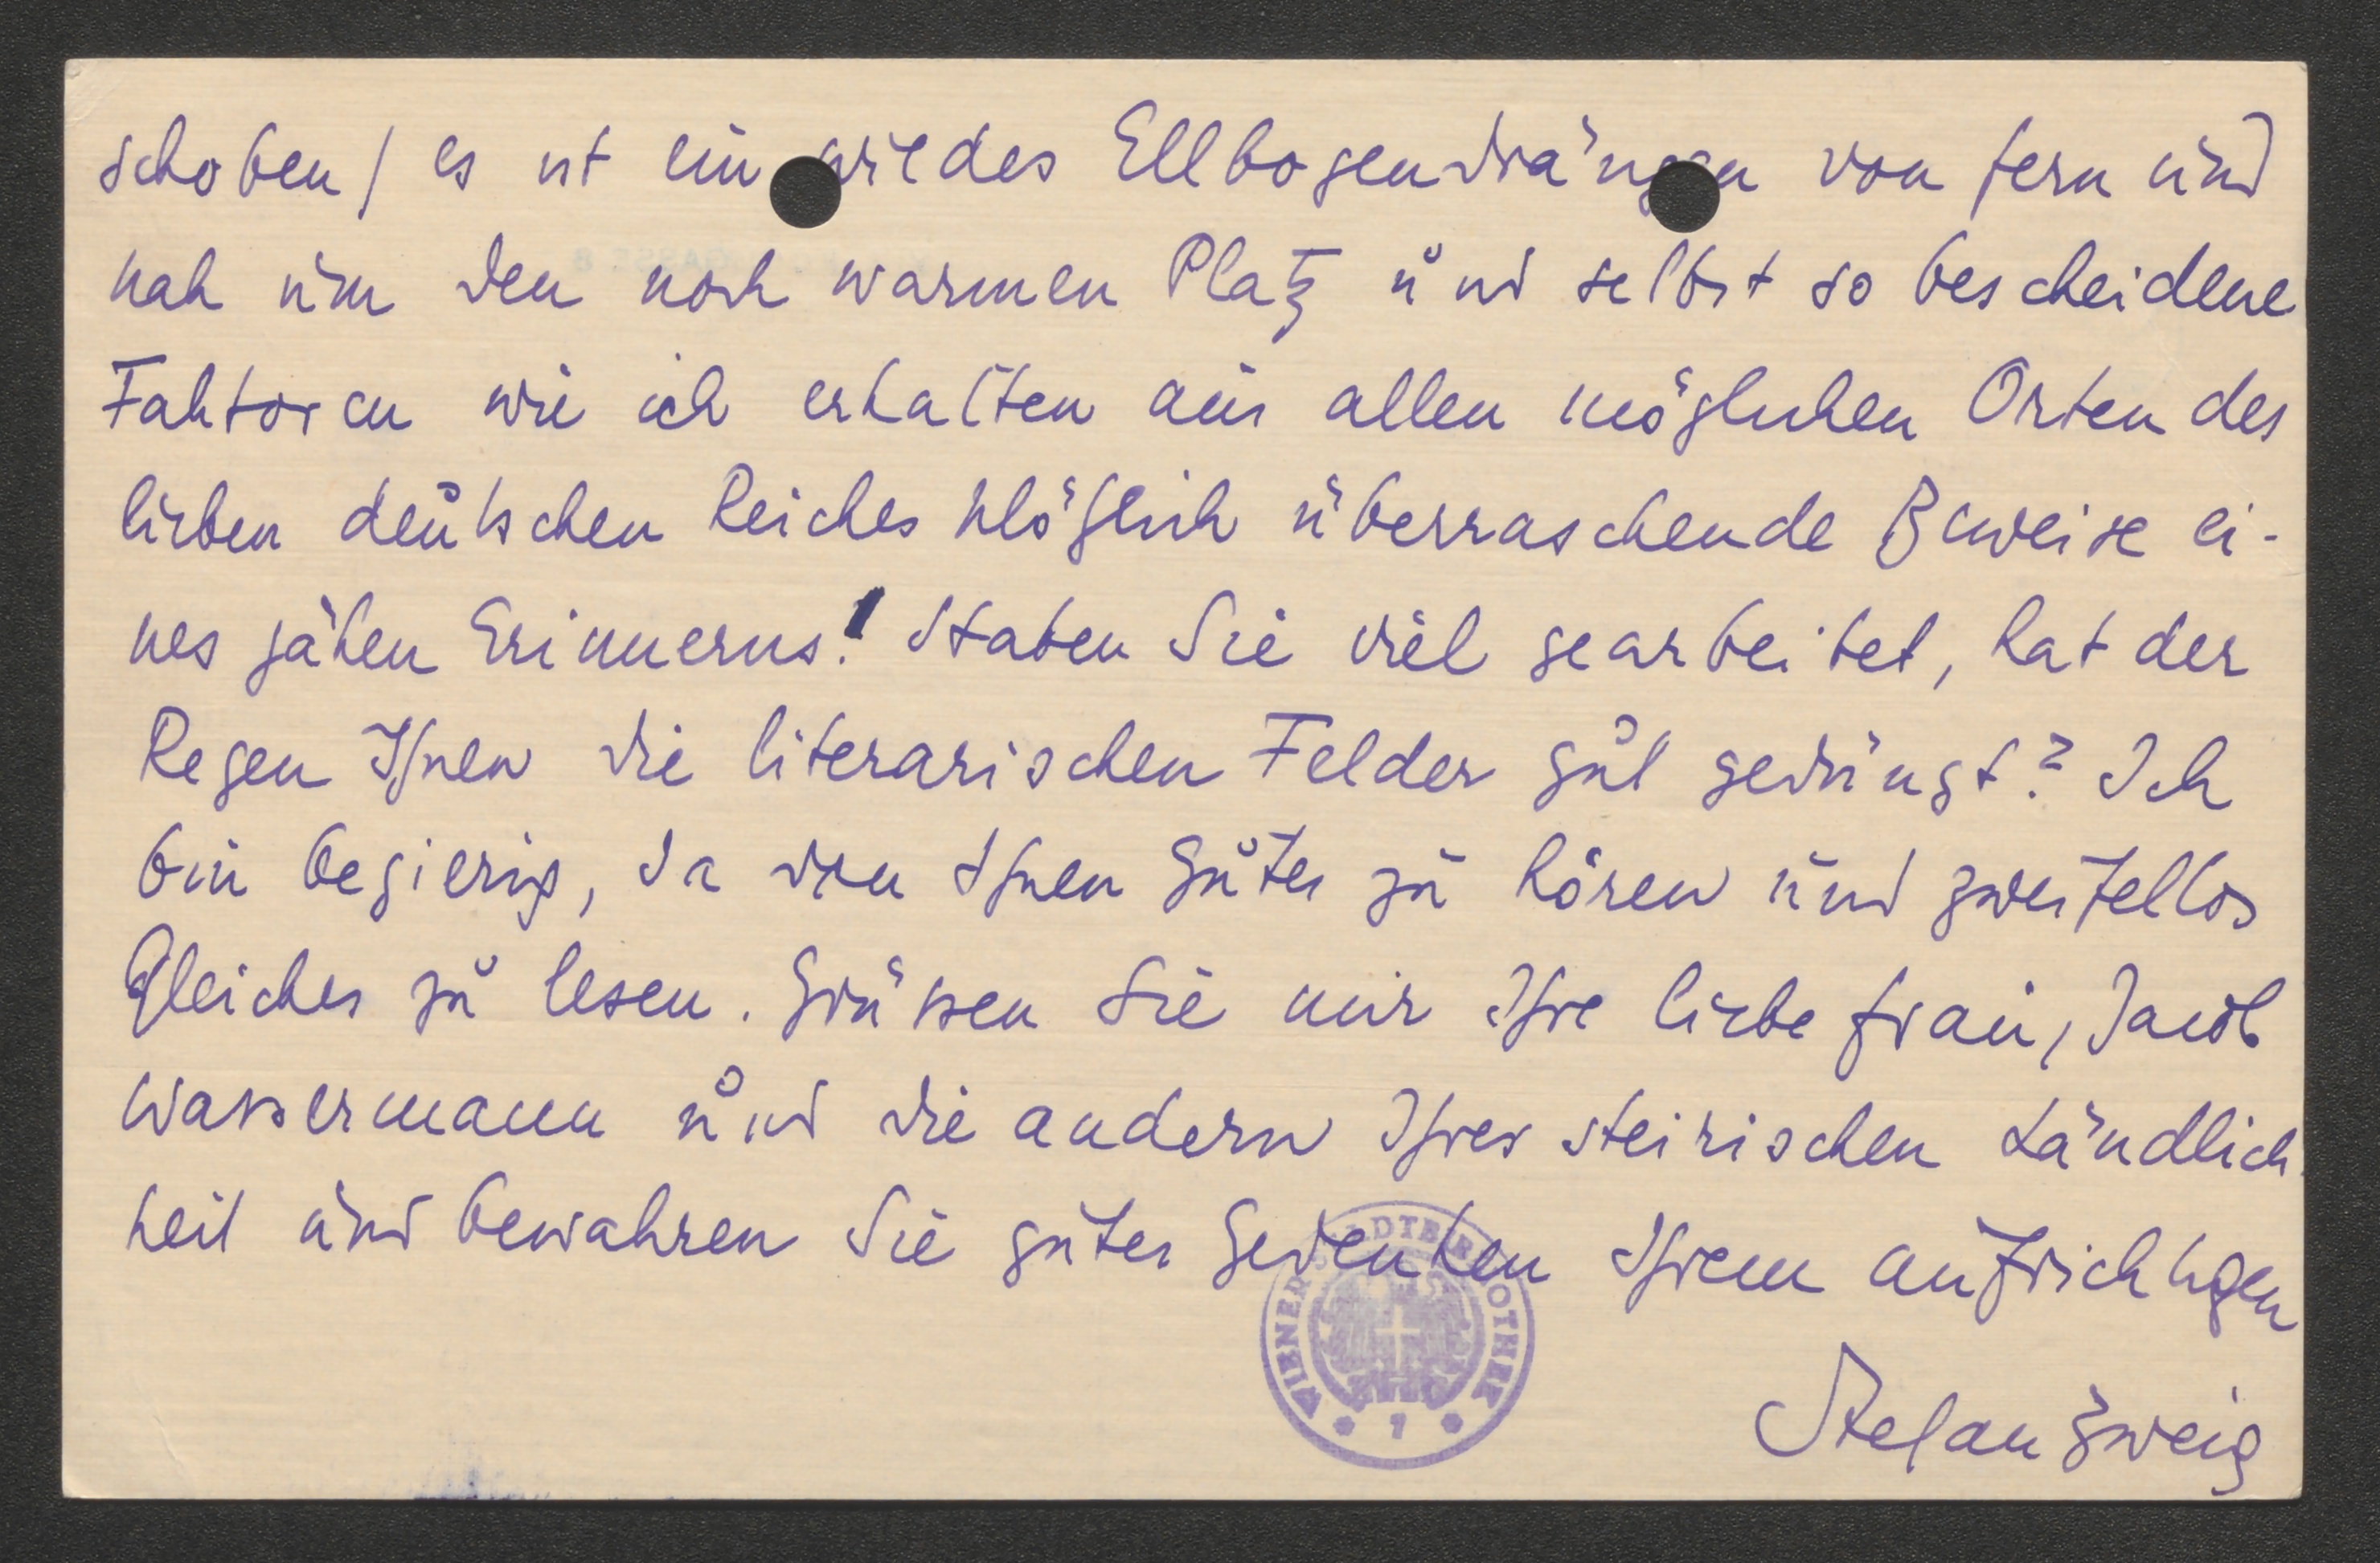 schoben / es ist ein wildes Ellbogendrängen von fern und
nah um den noch warmen Platz und selbst so bescheidene
Faktoren wie ich erhalten aus allen möglichen Orten des
lieben deutschen Reiches plötzlich überraschende Beweise ei-
nes jähen Erinnerns! Haben Sie viel gearbeitet, hat der
Regen Ihnen die literarischen Felder gut gedüngt? Ich
bin begierig, da von Ihnen Gutes zu hören und zweifellos
Gleiches zu lesen. Grüssen Sie mir Ihre liebe Frau, Jacob
Wassermann und die andern Ihrer steirischen Ländlich-
keit und bewahren Sie gutes Gedenken Ihrem aufrichtigen
Stefan Zweig
WIENER STADTBIBLIOTHEK
1